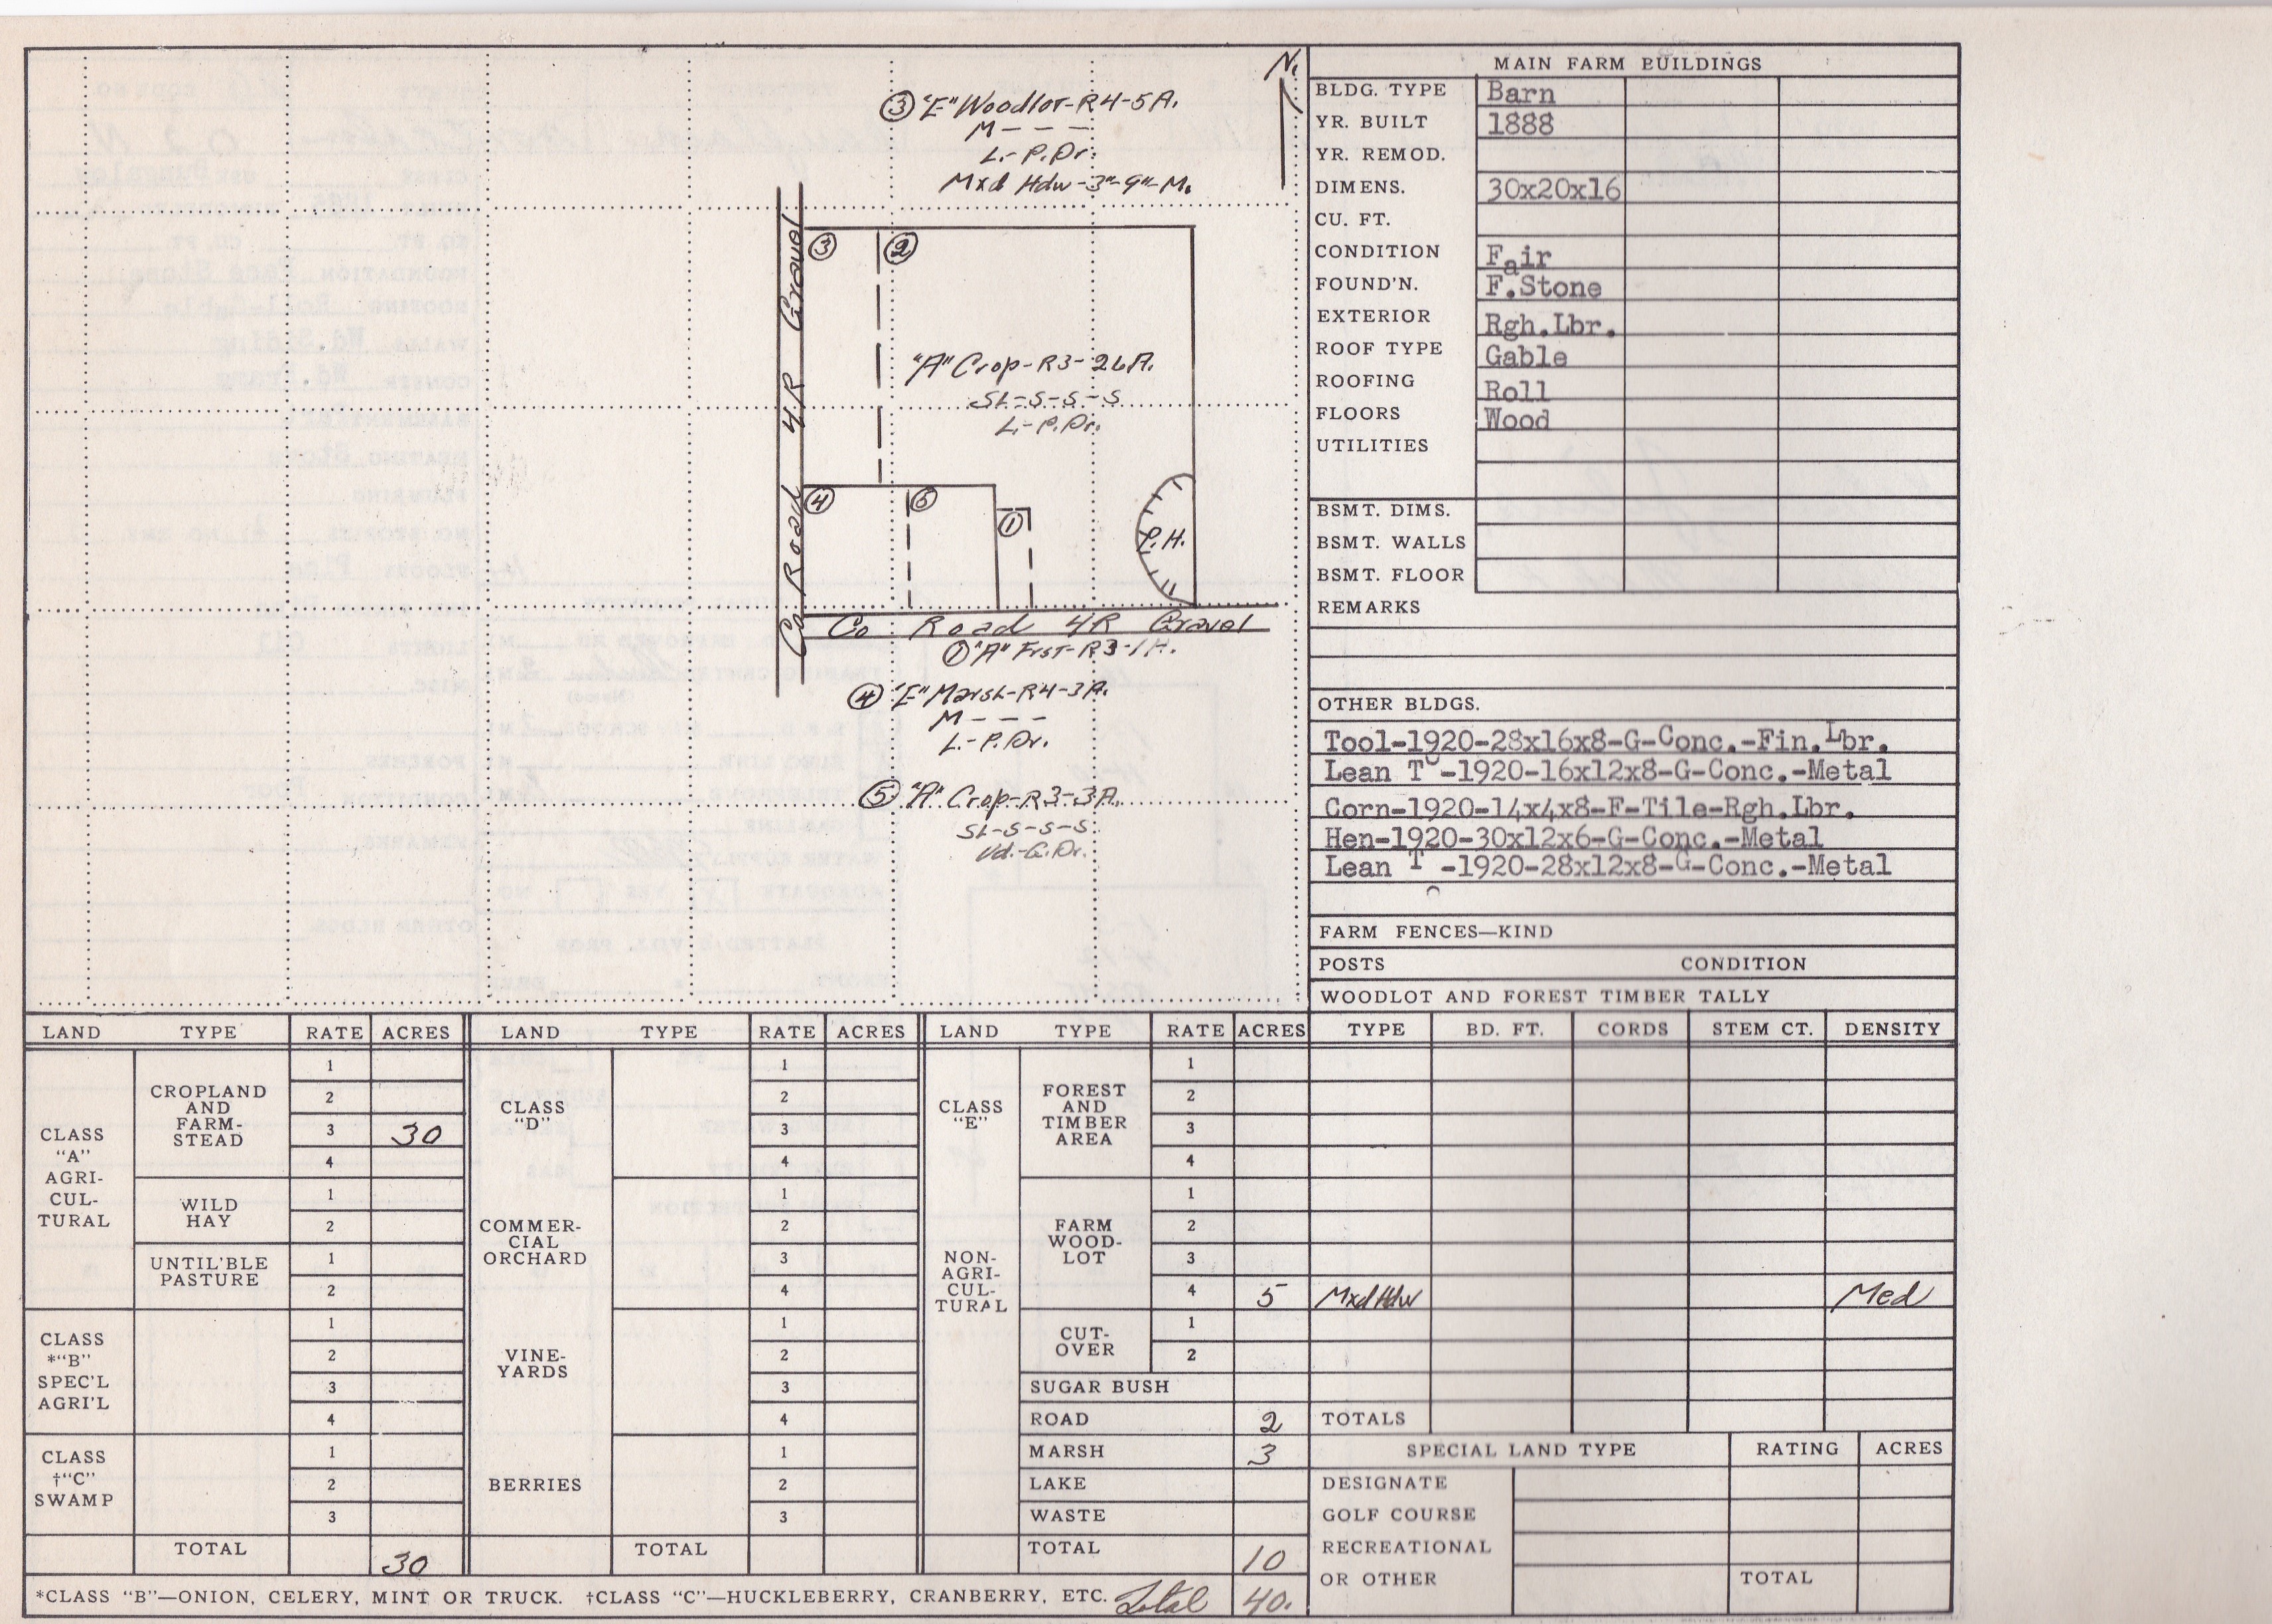 N.
③ "E" Woodlot-R4-5A.
M - - -
L.-P.Dr.
Mxd Hdw-3"-9"-M.
③ ②
Co Road 4R Gravel
"A" Crop-R3-26A.
SL-S-S-S
L.-P.Dr.
④ ⑤ ①
P.H.
Co Road 4R Gravel
① "A" Frst-R3-1A.
④ "E" Marsh-R4-3A.
M - - -
L.-P.Dr.
⑤ "A" Crop-R3-3A.
SL-S-S-S
Vd.-G.Dr.
MAIN FARM BUILDINGS
BLDG. TYPE Barn
YR. BUILT 1888
YR. REMOD.
DIMENS. 30x20x16
CU. FT.
CONDITION Fair
FOUND'N. F.Stone
EXTERIOR Rgh.Lbr.
ROOF TYPE Gable
ROOFING Roll
FLOORS Wood
UTILITIES
BSMT. DIMS.
BSMT. WALLS
BSMT. FLOOR
REMARKS
OTHER BLDGS.
Tool-1920-28x16x8-G-Conc.-Fin.Lbr.
Lean To-1920-16x12x8-G-Conc.-Metal
Corn-1920-14x4x8-F-Tile-Rgh.Lbr.
Hen-1920-30x12x6-G-Conc.-Metal
Lean To-1920-28x12x8-G-Conc.-Metal
FARM FENCES—KIND
POSTS CONDITION
WOODLOT AND FOREST TIMBER TALLY
LAND TYPE RATE ACRES LAND TYPE RATE ACRES LAND TYPE RATE ACRES TYPE BD. FT. CORDS STEM CT. DENSITY
CLASS
"A"
AGRI-
CUL-
TURAL
CROPLAND
AND
FARM-
STEAD
1
2
3 30
4
WILD
HAY
1
2
UNTIL'BLE
PASTURE
1
2
CLASS
*"B"
SPEC'L
AGRI'L
1
2
3
4
CLASS
†"C"
SWAMP
1
2
3
TOTAL 30
CLASS
"D"
1
2
3
4
COMMER-
CIAL
ORCHARD
1
2
3
4
VINE-
YARDS
1
2
3
4
BERRIES
1
2
3
TOTAL
CLASS
"E"
NON-
AGRI-
CUL-
TURAL
FOREST
AND
TIMBER
AREA
1
2
3
4
FARM
WOOD-
LOT
1
2
3
4 5 Mxd Hdw Med
CUT-
OVER
1
2
SUGAR BUSH
ROAD 2 TOTALS
MARSH 3
LAKE
WASTE
TOTAL 10
SPECIAL LAND TYPE RATING ACRES
DESIGNATE
GOLF COURSE
RECREATIONAL
OR OTHER TOTAL
*CLASS "B"—ONION, CELERY, MINT OR TRUCK. †CLASS "C"—HUCKLEBERRY, CRANBERRY, ETC. Total 40.